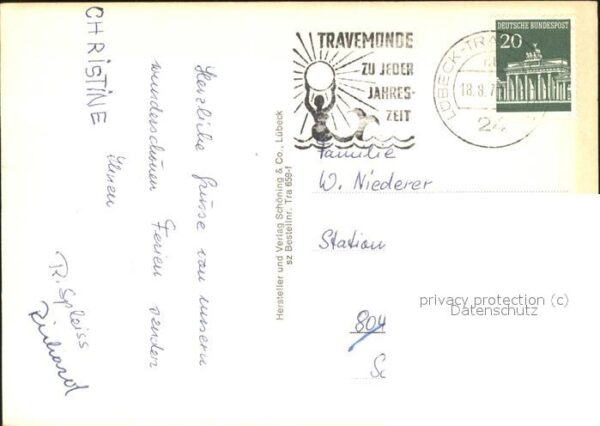 CHRISTINE
Herzliche Grüsse von unsern
wunderschönen Ferien senden
Ihnen
R. Spleiss
Richard
Hersteller und Verlag Schöning & Co., Lübeck
sz Bestellnr. Tra 659-f
TRAVEMÜNDE
ZU JEDER
JAHRES-
ZEIT
LÜBECK-TRA
18.8.7
24
DEUTSCHE BUNDESPOST
20
Familie
W. Niederer
Station
804
Sc
privacy protection (c)
Datenschutz